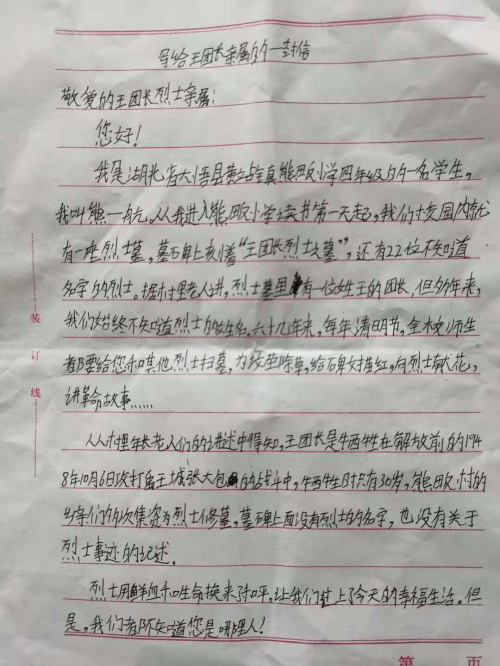 写给王团长亲属的一封信
敬爱的王团长烈士亲属：
您好！
我是湖北省大悟县黄站镇熊畈小学四年级的一名学生，
我叫熊一航。从我进入熊畈小学读书第一天起，我们校园内就
有一座烈士墓，墓石碑上刻着“王团长烈士之墓”，还有22位不知道
名字的烈士。据村里老人讲，烈士墓里有一位姓王的团长，但多年来，
我们始终不知道烈士的姓名。六十几年来，每年清明节，全校师生
都要给您和其他烈士扫墓，为坟茔除草，给碑文描红，向烈士献花，
讲革命故事……
从村里年长老人们的讲述中得知，王团长是牺牲在解放前的194
8年10月6日攻打禹王城张大包的战斗中，牺牲时只有30岁，熊畈村的
乡亲们的次集资为烈士修墓，墓碑上面没有烈士的名字，也没有关于
烈士事迹的记述。
烈士用鲜血和生命换来了和平，让我们过上了今天的幸福生活。但
是，我们都不知道您是哪里人！
装
订
线
第 页